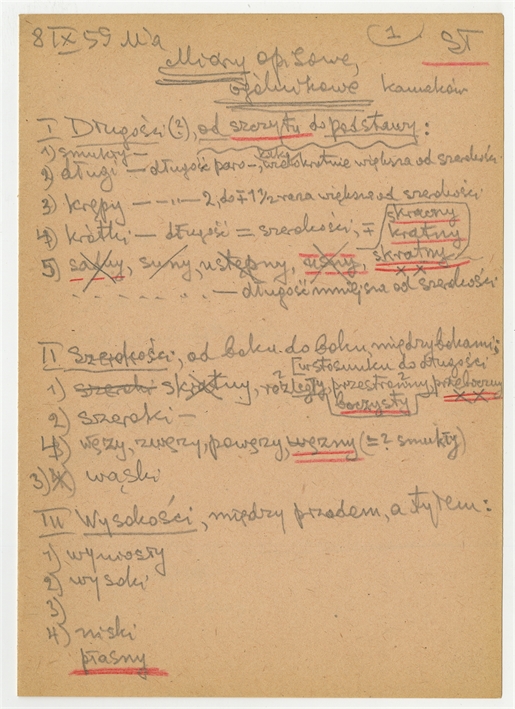 8 IX 59 Ma 1 ST
Miary opisowe,
ogólnikowe kamaków
I Długości (?), od szczytu do podstawy:
1) smukły —
2) długi — długość paro-, kilkakrotnie większa od szerokości
3) krępy — — " — 2, do ∓ 1 1/2 raza większa od szerokości
4) krótki — długość = szerokości, ∓ skrawny
krątny
5) suny, ustępny, skratny
— długość mniejsza od szerokości
II Szerokości, od boku do boku, międzybokami;
[w stosunku do długości
1) szeroki rozległy, przestronny,
boczysty
2) szeroki —
4) węzy, zwęzy, powęzy, węzny (= ? smukły)
3) wąski
III Wysokości, między przodem, a tyłem:
1) wyniosły
2) wysoki
3)
4) niski
płasny